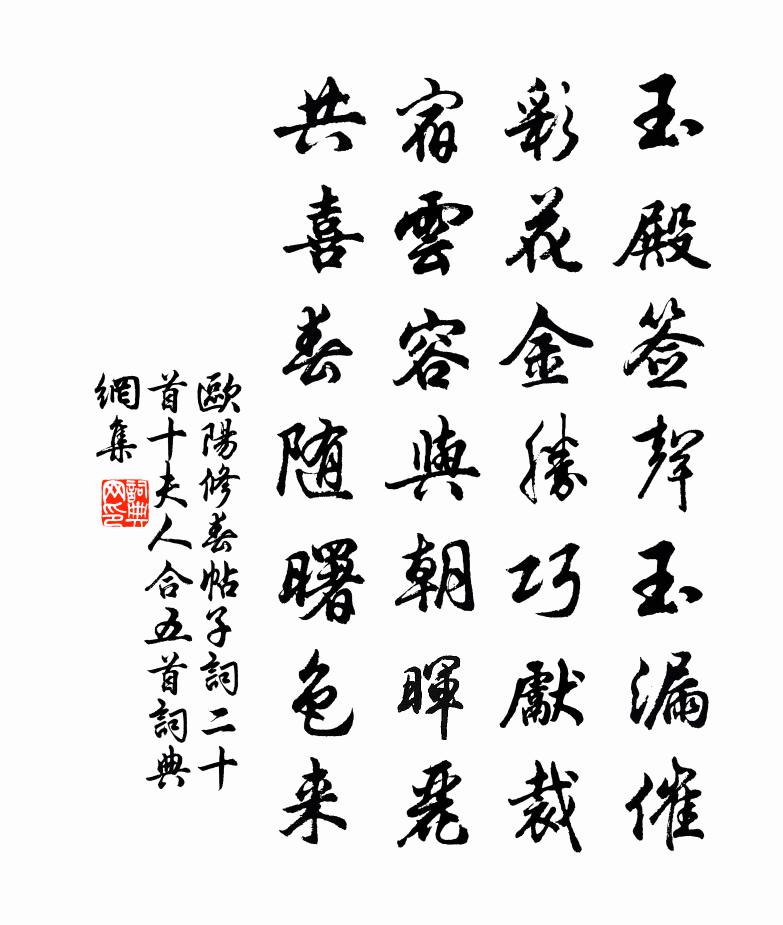 玉殿签聲玉漏催
彩花金勝巧獻裁
宿雲容與朝暉麗
共喜春随曙色来
歐陽修春帖子詞二十
首十夫人合五首詞典
網集
詞典
网印